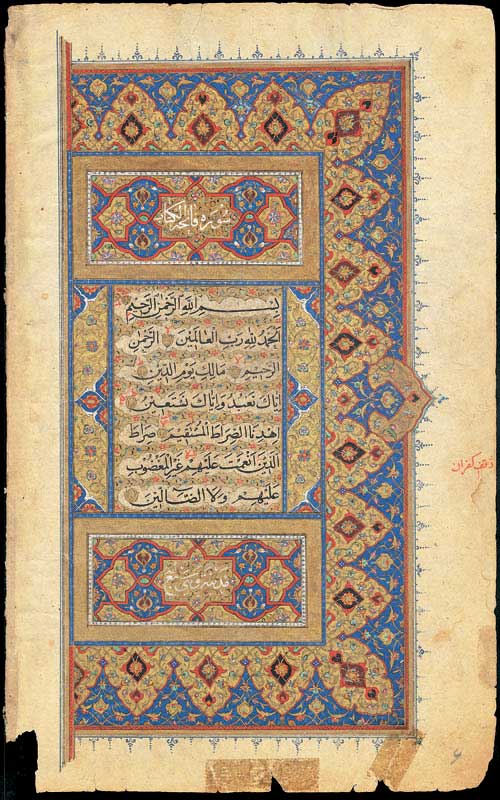 سوره فاتحة الكتاب
بِسْمِ اللهِ الرَّحْمٰنِ الرَّحِيمِ
اَلْحَمْدُ لِلّٰهِ رَبِّ الْعَالَمِينَ الرَّحْمٰنِ
الرَّحِيمِ مَالِكِ يَوْمِ الدِّينِ
اِيَّاكَ نَعْبُدُ وَاِيَّاكَ نَسْتَعِينُ
اِهْدِنَا الصِّرَاطَ الْمُسْتَقِيمَ صِرَاطَ
الَّذِينَ اَنْعَمْتَ عَلَيْهِمْ غَيْرِ الْمَغْضُوبِ
عَلَيْهِمْ وَلَا الضَّالِّينَ